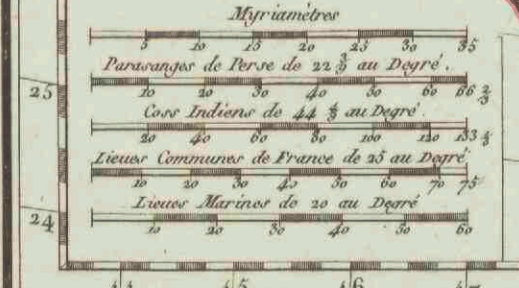 Myriamètres
5 10 15 20 25 30 35
Parasanges de Perse de 22 2/9 au Degré.
10 20 30 40 50 60 66 2/3
Coss Indiens de 44 4/9 au Degré
20 40 60 80 100 120 133 1/3
Lieues Communes de France de 25 au Degré
10 20 30 40 50 60 70 75
Lieues Marines de 20 au Degré
10 20 30 40 50 60
25
24
44 45 46 47